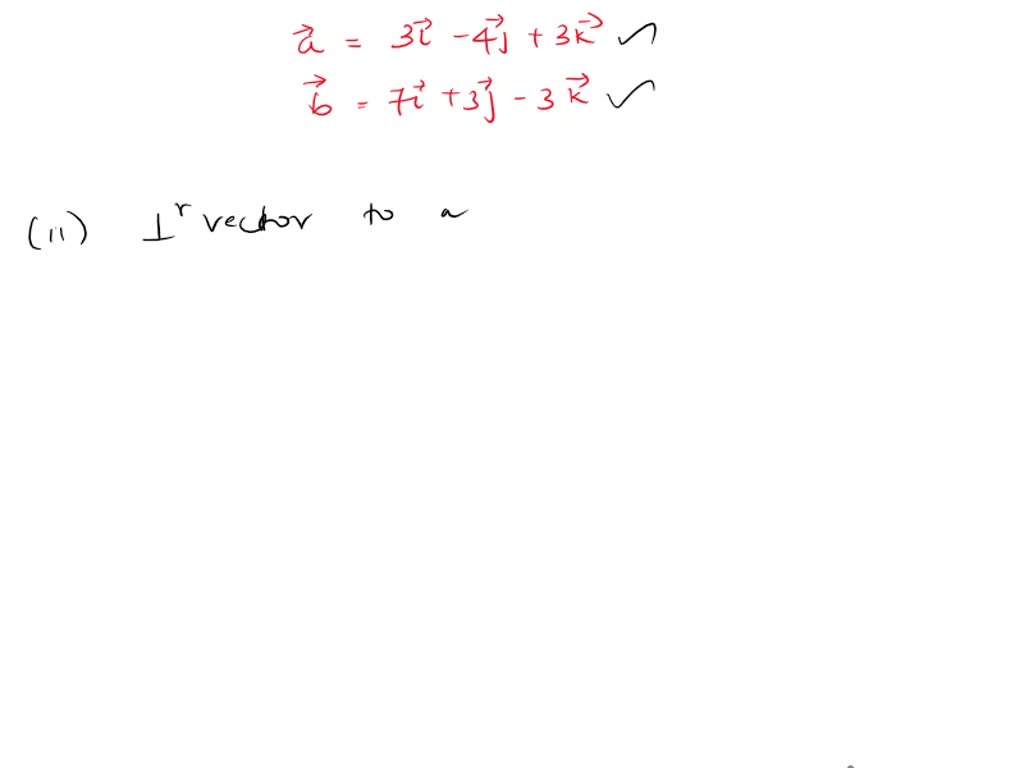 a⃗ = 3i⃗ - 4j⃗ + 3k⃗ ✓
b⃗ = 7i⃗ + 3j⃗ - 3k⃗ ✓
(ii) ⊥ʳ vector to a